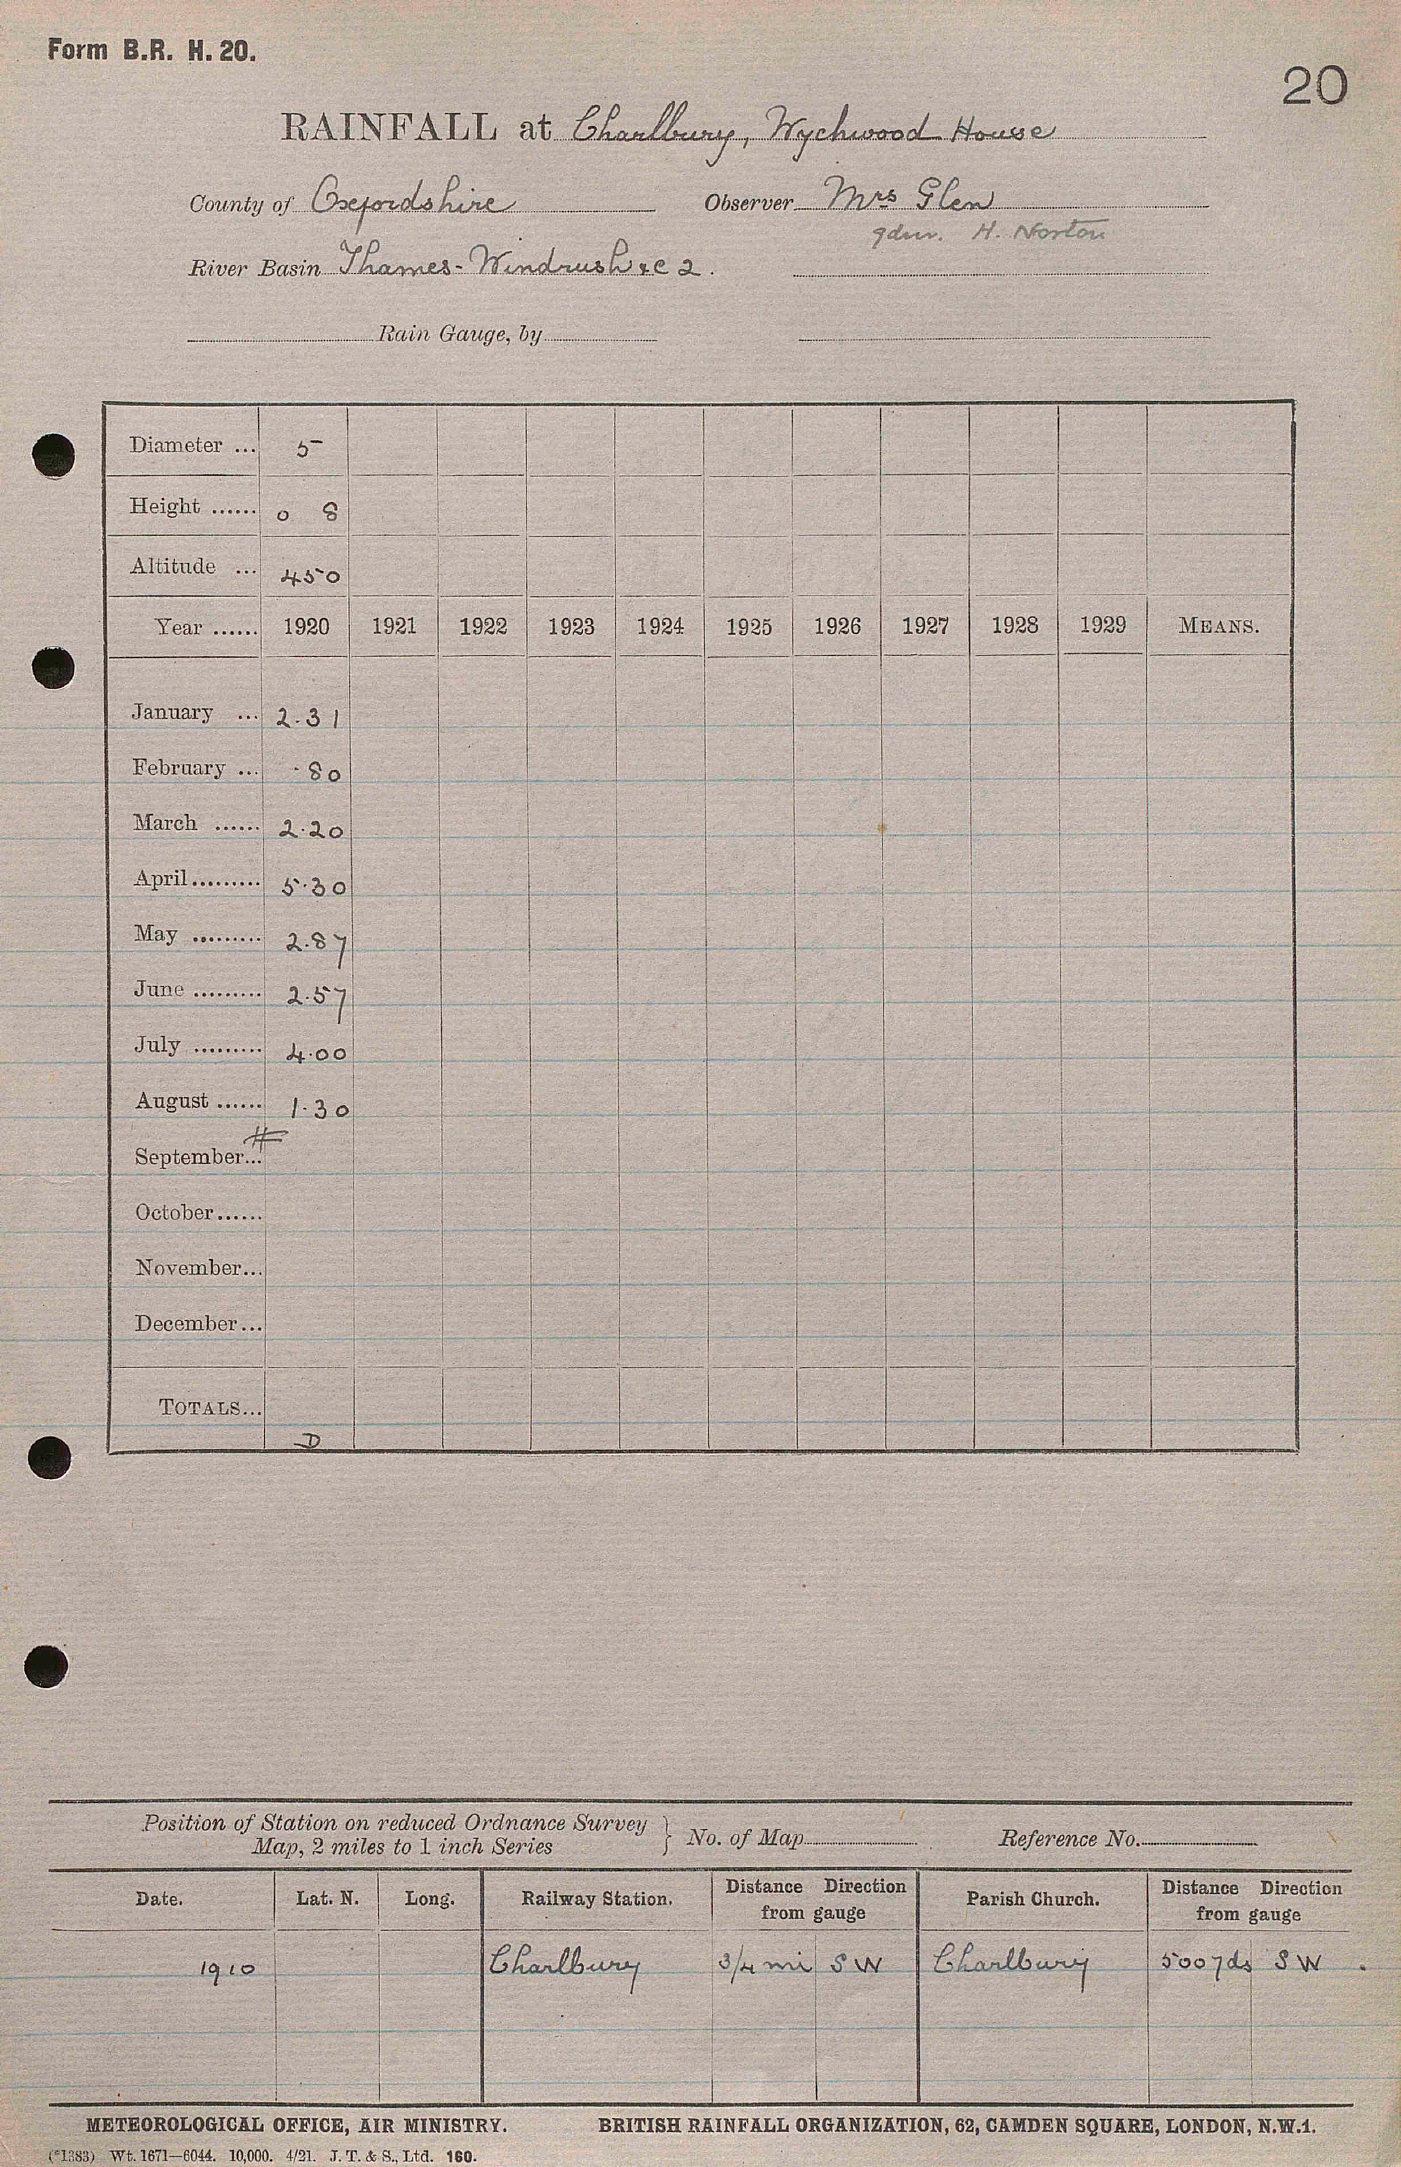 Form B.R. H. 20.
20
RAINFALL at Charlbury, Wychwood House
County of Oxfordshire Observer Mrs Glen
gdnr. H. Norton
River Basin Thames - Windrush &c 2.
Rain Gauge, by
Diameter ... 5
Height ...... 0 8
Altitude ... 450
Year ...... 1920 1921 1922 1923 1924 1925 1926 1927 1928 1929 MEANS.
January ... 2.31
February ... .80
March ...... 2.20
April......... 5.30
May ......... 2.87
June ......... 2.57
July ......... 4.00
August ...... 1.30
September... #
October......
November...
December...
TOTALS...
D
Position of Station on reduced Ordnance Survey
Map, 2 miles to 1 inch Series } No. of Map Reference No.
Date. Lat. N. Long. Railway Station. Distance from gauge Direction Parish Church. Distance from gauge Direction
1910 Charlbury 3/4 mi S W Charlbury 500 yds S W .
METEOROLOGICAL OFFICE, AIR MINISTRY. BRITISH RAINFALL ORGANIZATION, 62, CAMDEN SQUARE, LONDON, N.W.1.
(*1383) Wt. 1671—6044. 10,000. 4/21. J. T. & S., Ltd. 160.